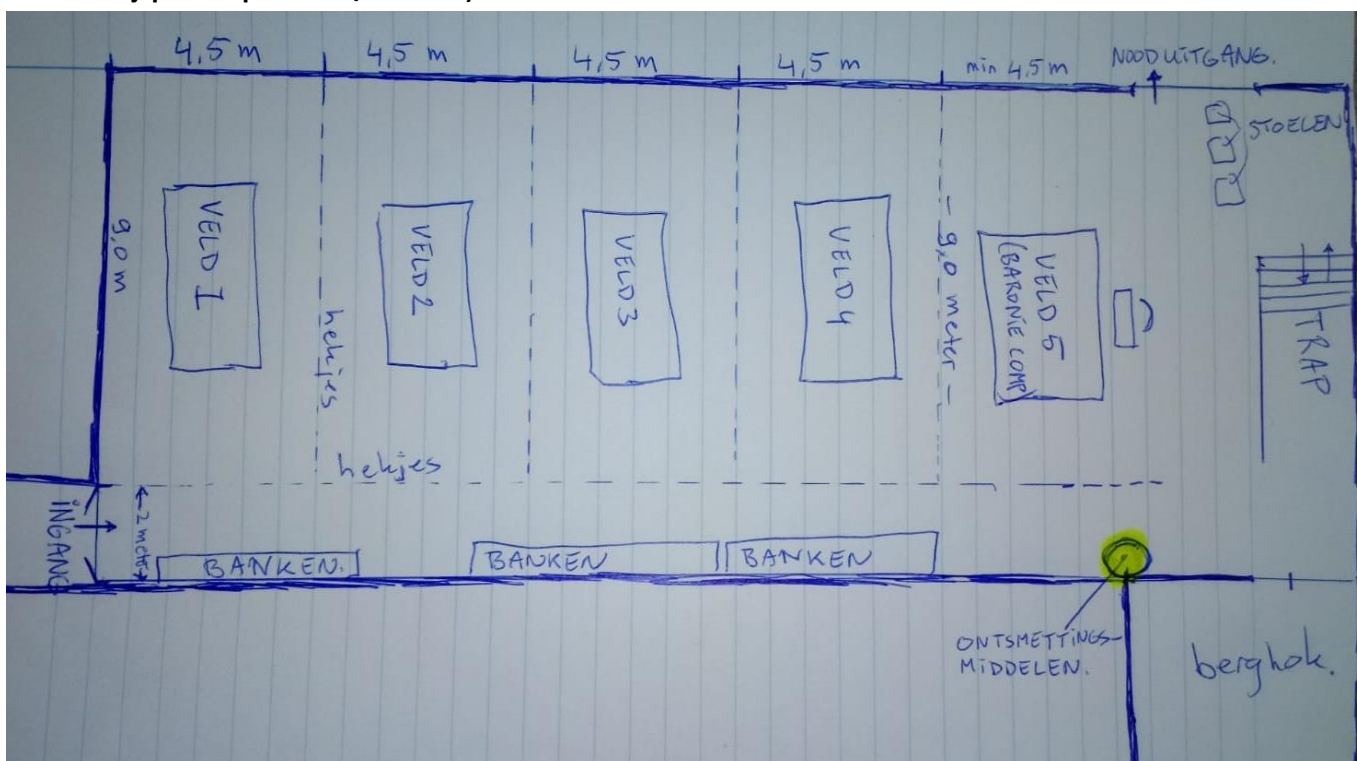 4,5 m
4,5 m
4,5 m
4,5 m
min 4,5 m
NOODUITGANG.
STOELEN
9,0 m
VELD 1
hekjes
VELD 2
VELD 3
VELD 4
- 9,0 meter -
VELD 5
(BARONIE COMP)
TRAP
hekjes
INGANG
2 meter
BANKEN.
BANKEN
BANKEN
ONTSMETTINGS-
MIDDELEN.
berghok.